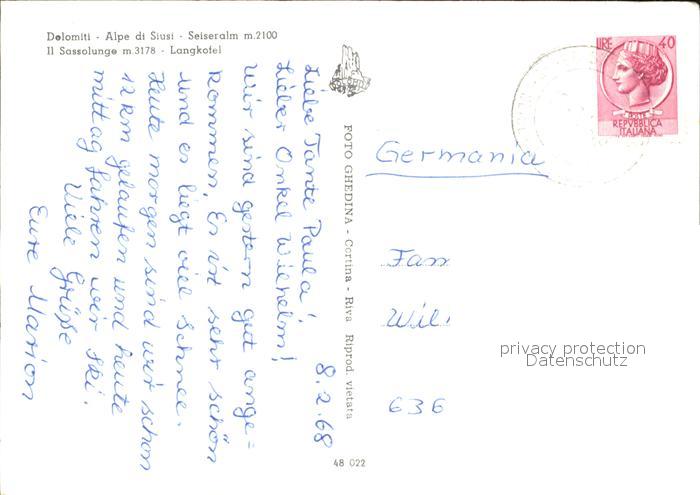 Dolomiti - Alpe di Siusi - Seiseralm m.2100
Il Sassolungo m.3178 - Langkofel
8.2.68
Liebe Tante Paula!
Lieber Onkel Wilhelm!
Wir sind gestern gut ange=
kommen. Es ist sehr schön
und es liegt viel Schnee.
Heute morgen sind wir schon
12 km gelaufen und heute
mittag fahren wir Ski.
Viele Grüße
Eure Marion
FOTO GHEDINA - Cortina - Riva Riprod. vietata
48 022
LIRE 40
POSTE
REPVBBLICA
ITALIANA
Germania
Fam
Wil
636
privacy protection
Datenschutz